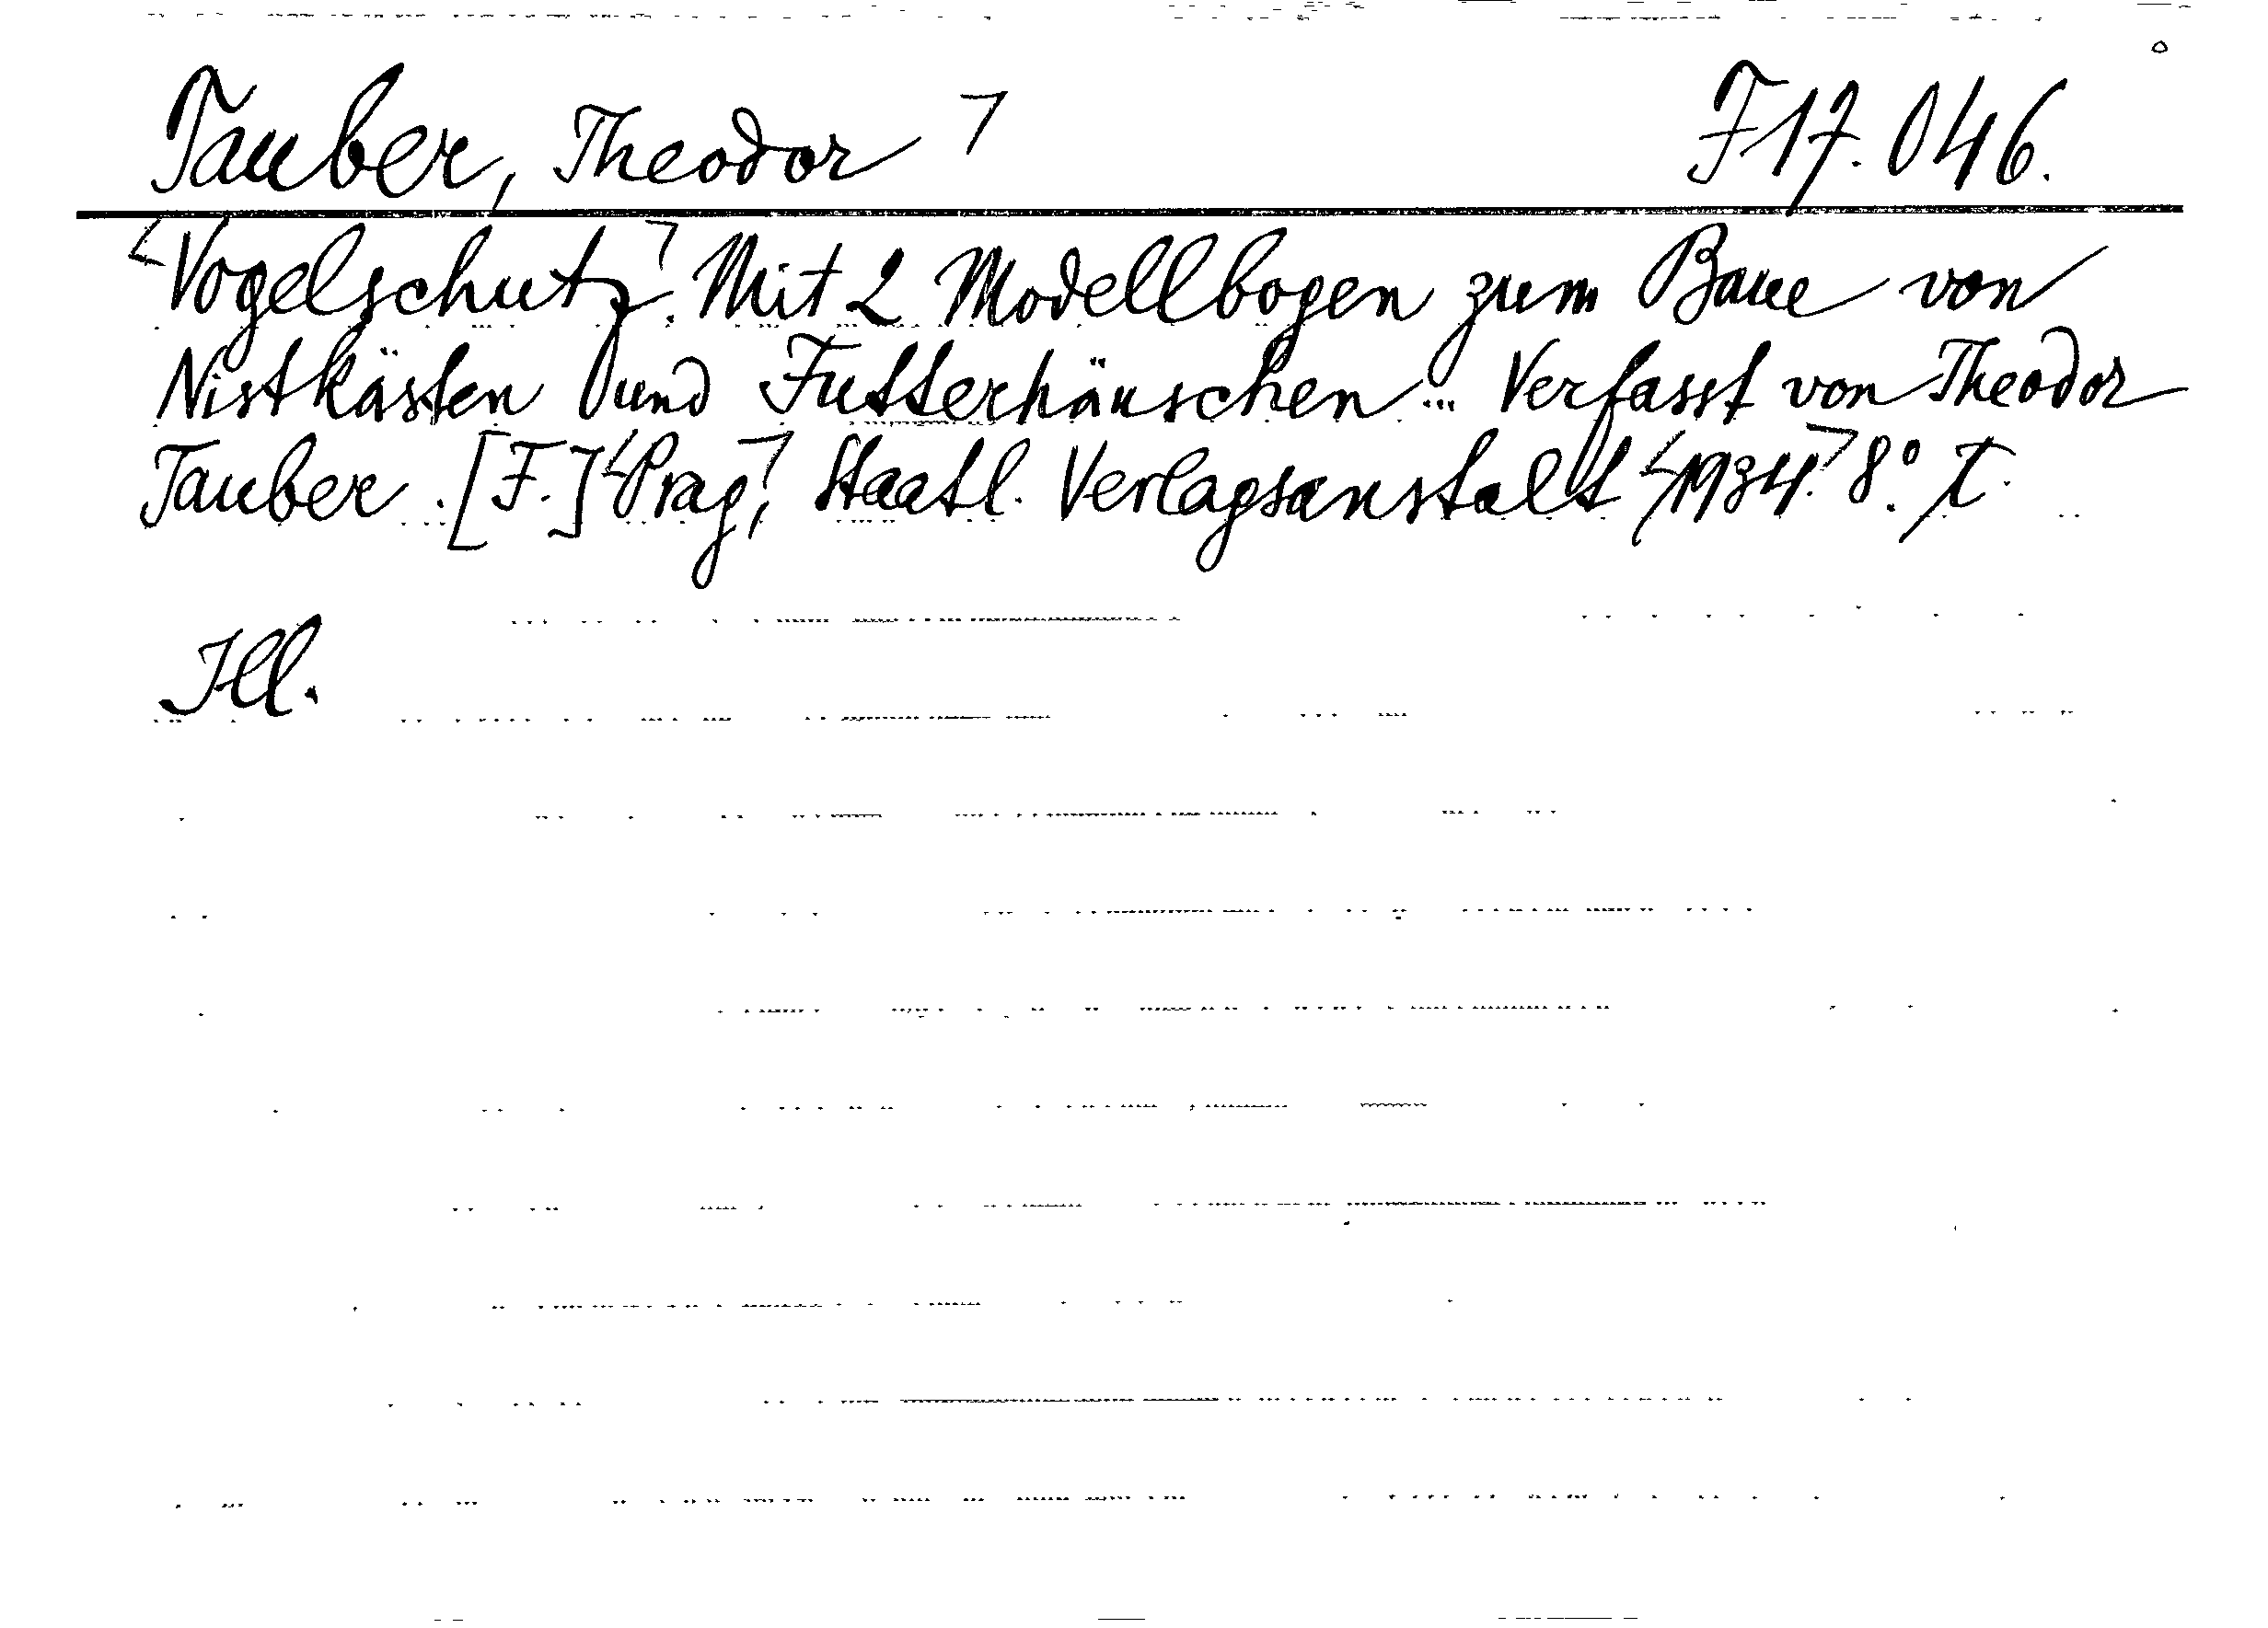 Tauber, Theodor ⌝ F 17.046.
⌊Vogelschutz⌝. Mit 2 Modellbogen zum Baue von
Nistkästen und Futterhäuschen ... Verfasst von Theodor
Tauber. [F.] ⌊Prag⌝, Staatl. Verlagsanstalt ⌊1934.⌝ 8°. T.
Ill.